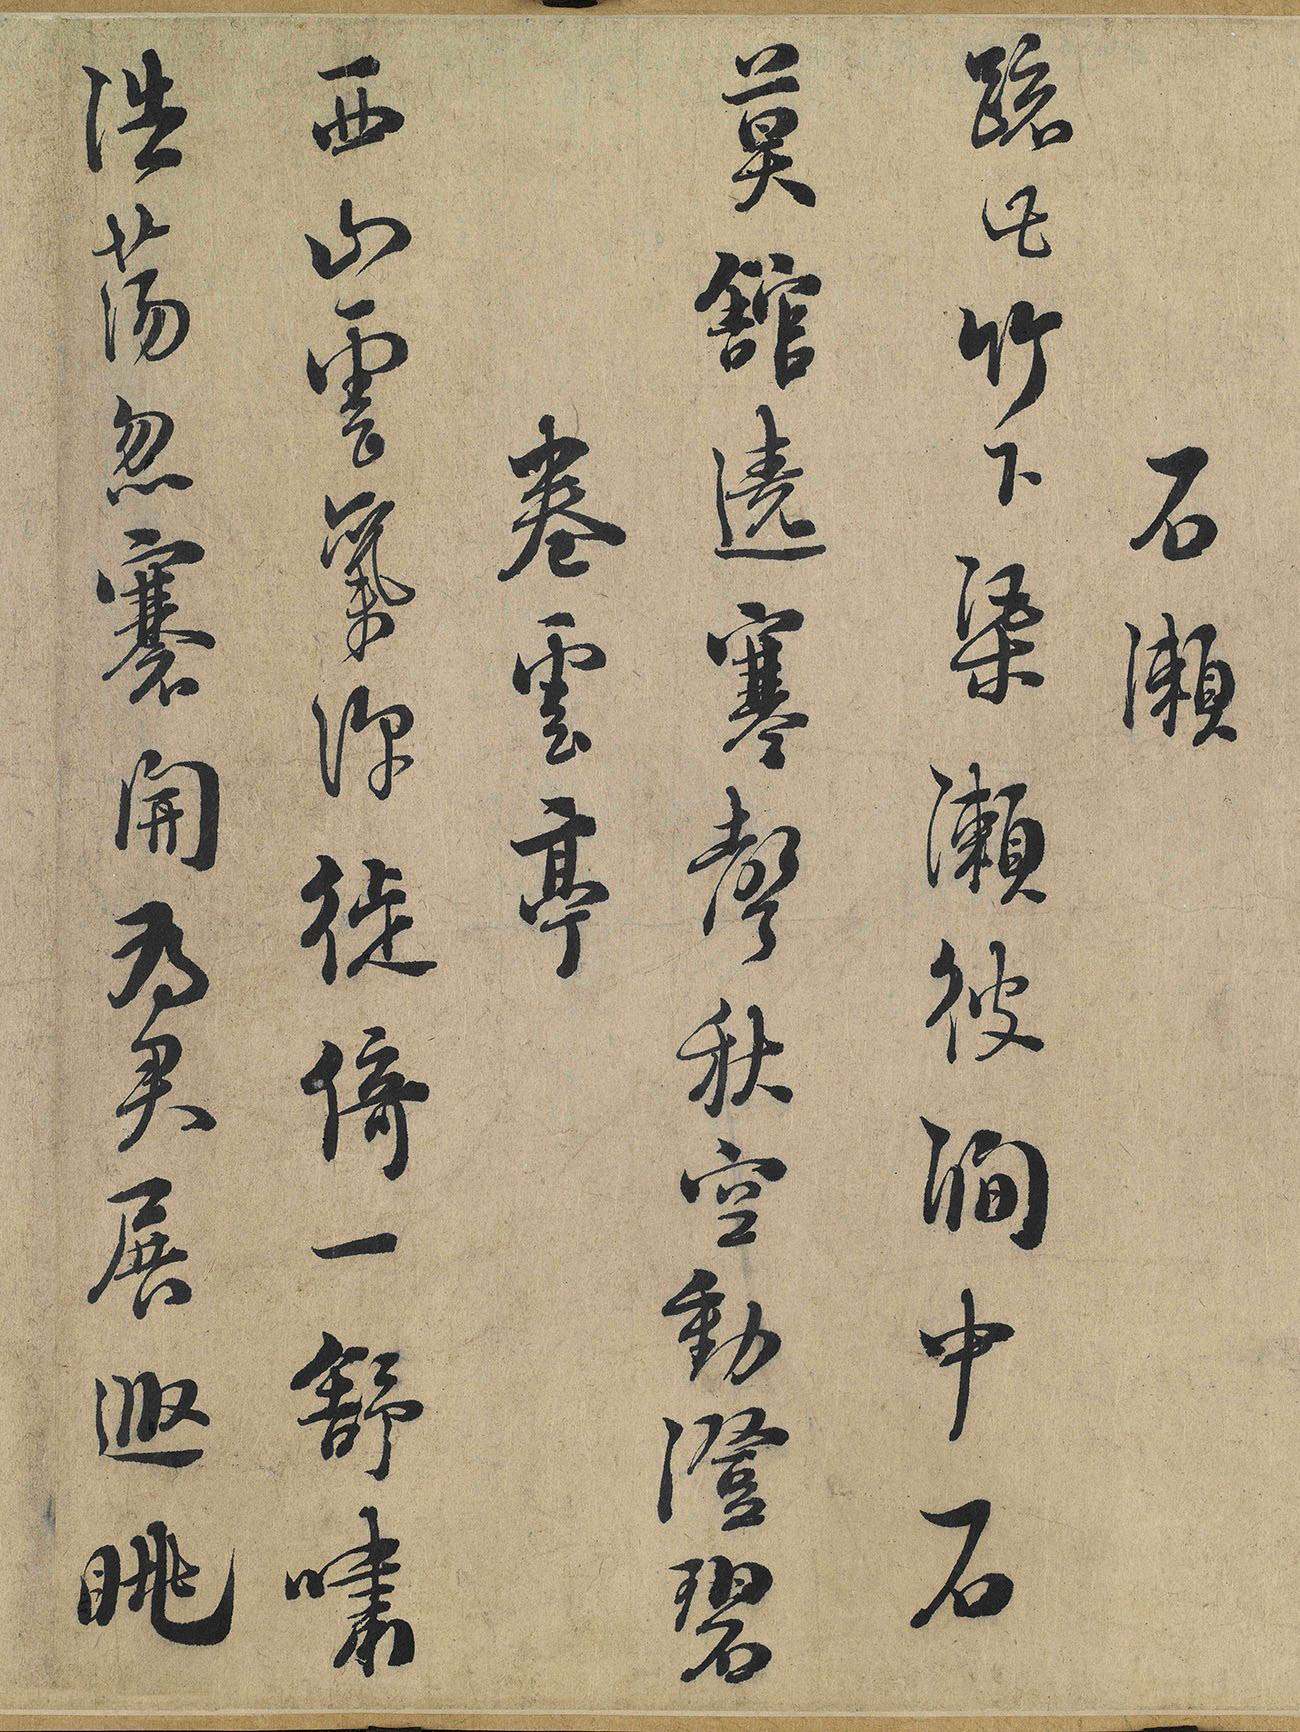 石瀨
疏此竹下渠瀨彼澗中石
莫館遶寒聲秋空動澄碧
卷雲亭
西山雲氣深徙倚一舒嘯
浩蕩忽褰開為君展遐眺